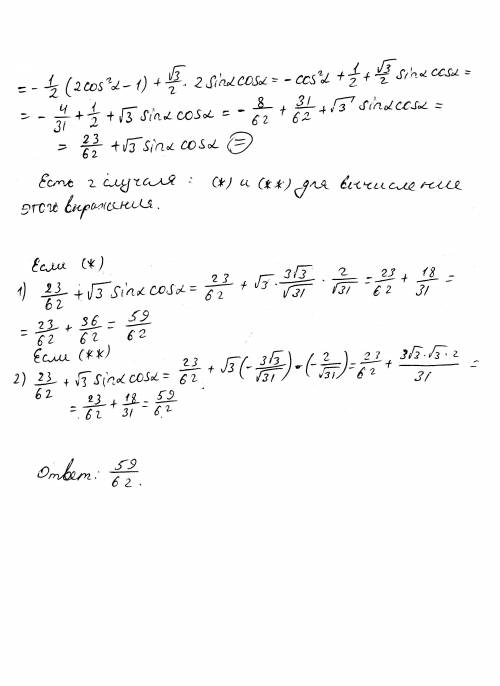 = - 1/2 (2cos²α - 1) + √3/2 · 2 sinα cosα = - cos²α + 1/2 + √3/2 sinα cosα =
= - 4/31 + 1/2 + √3 sinα cosα = - 8/62 + 31/62 + √3 sinα cosα =
= 23/62 + √3 sinα cosα (=)
Есть 2 случая : (*) и (**) для вычисление
этого выражения.
Если (*)
1) 23/62 + √3 sinα cosα = 23/62 + √3 · 3√3/√31 · 2/√31 = 23/62 + 18/31 =
= 23/62 + 36/62 = 59/62
Если (**)
2) 23/62 + √3 sinα cosα = 23/62 + √3 (- 3√3/√31) · (- 2/√31) = 23/62 + 3√3 · √3 · 2/31 =
= 23/62 + 18/31 = 59/62
Ответ: 59/62.